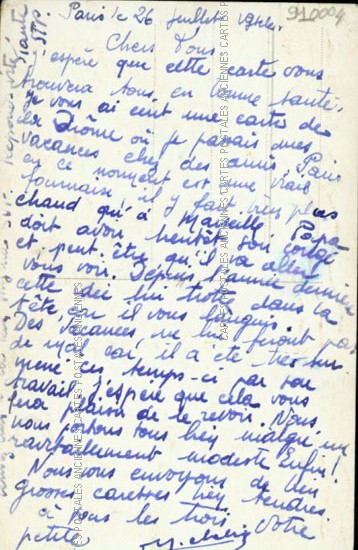 Paris le 26 juillet 1942.
910004
Chers Tous
J'espère que cette carte vous
trouvera tous en bonne santé.
Je vous ai écrit une carte de
la Drôme où je passais mes
vacances chez des amis. Paris
en ce moment est une vraie
fournaise il y fait bien plus
chaud qu'à Marseille Papa
doit avoir bientôt son congé
et peut être qu'il ira
vous voir. Depuis l'année dernière
cette idée lui trotte dans la
tête, car il vous
Des vacances ne lui feront pas
de mal car il a été très sur-
mené ces temps-ci par son
travail. J'espère que cela vous
fera plaisir de le revoir. Nous
nous portons tous bien malgré un
ravitaillement modeste Enfin!
Nous vous envoyons de bien
grosses caresses bien tendres
à vous les trois. Votre
petite
CARTES POSTALES ANCIENNES CARTES POSTALES ANCIENNES CARTES POSTALES
CARTES POSTALES ANCIENNES CARTES POSTALES ANCIENNES